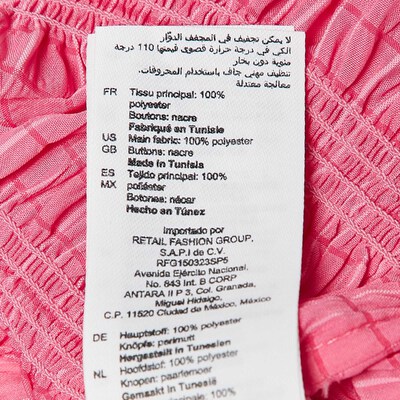 لا يمكن تجفيف في المجفف الدوّار
الكي في درجة حرارة قصوى قيمتها 110 درجة
مئوية دون بخار
تنظيف مهني جاف باستخدام المحروقات.
معالجة معتدلة
FR Tissu principal: 100%
polyester
Boutons: nacre
Fabriqué en Tunisie
US Main fabric: 100% polyester
GB Buttons: nacre
Made in Tunisia
ES Tejido principal: 100%
MX poliéster
Botones: nácar
Hecho en Túnez
Importado por
RETAIL FASHION GROUP,
S.A.P.I de C.V.
RFG150323SP5
Avenida Ejército Nacional,
No. 843 Int. B CORP
ANTARA II P 3, Col. Granada,
Miguel Hidalgo,
C.P. 11520 Ciudad de México, México
DE Hauptstoff: 100% polyester
Knöpfe: perlmutt
Hergestellt in Tunesien
NL Hoofdstof: 100% polyester
Knopen: paarlemoer
Gemaakt in Tunesië